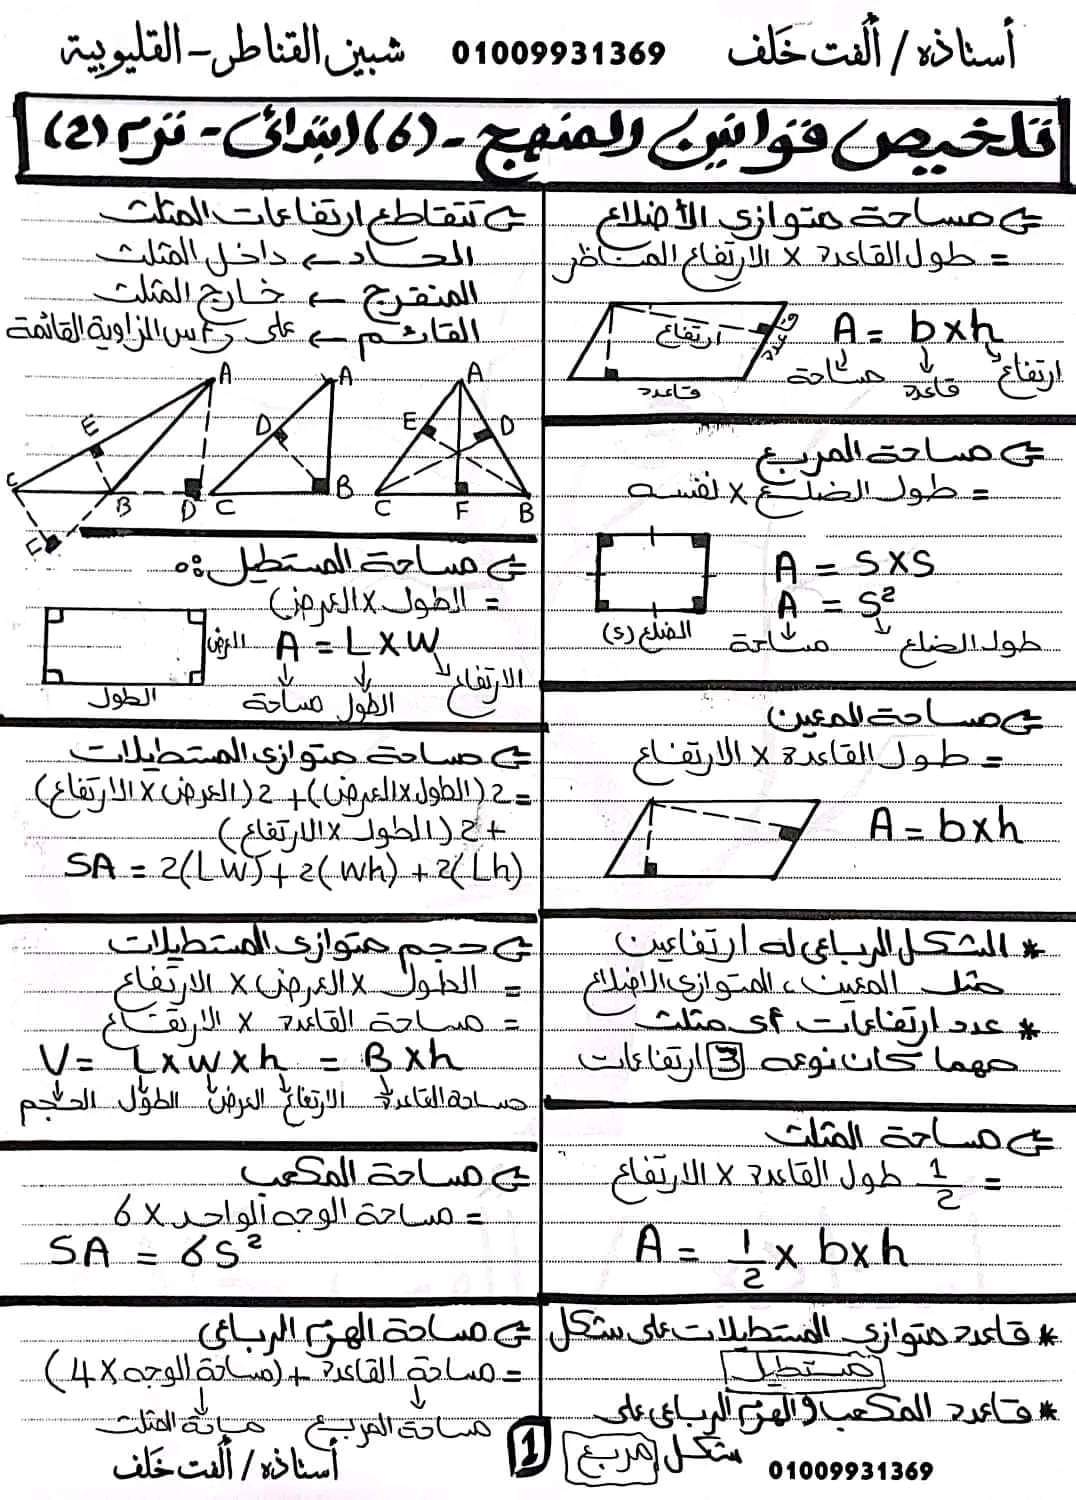 أستاذه/ ألفت خلف 01009931369 شبين القناطر - القليوبية
تلخيص قوانين المنهج - (6) ابتدائى - ترم (2)
مساحة متوازى الأضلاع
= طول القاعدة × الارتفاع المناظر
ارتفاع
قاعدة
قاعدة
A = b×h
ارتفاع قاعدة مساحة
مساحة المربع
= طول الضلع × نفسه
A = S×S
A = S²
الضلع (S)
طول الضلع مساحة
مساحة المعين
= طول القاعدة × الارتفاع
A = b×h
* الشكل الرباعى له ارتفاعين
مثل المعين، المتوازى الاضلاع
* عدد ارتفاعات أى مثلث
مهما كان نوعه 3 ارتفاعات
مساحة المثلث
= 1/2 طول القاعدة × الارتفاع
A = 1/2 × b×h
* قاعدة متوازى المستطيلات على شكل
مستطيل
* قاعدة المكعب والهرم الرباعى على
شكل مربع
01009931369
تتقاطع ارتفاعات المثلث
الحاد ← داخل المثلث
المنفرج ← خارج المثلث
القائم ← على رأس الزاوية القائمة
A E C B D F
A D B C
A E D C F B
مساحة المستطيل :
= الطول × العرض
A = L×W
العرض
الطول
الارتفاع الطول مساحة
مساحة متوازى المستطيلات
= 2(الطول×العرض) + 2(العرض×الارتفاع)
+ 2(الطول×الارتفاع)
SA = 2(LW) + 2(Wh) + 2(Lh)
حجم متوازى المستطيلات
= الطول × العرض × الارتفاع
= مساحة القاعدة × الارتفاع
V = L×W×h = B×h
مساحة القاعدة الارتفاع العرض الطول الحجم
مساحة المكعب
= مساحة الوجه الواحد × 6
SA = 6S²
مساحة الهرم الرباعى
= مساحة القاعدة + (مساحة الوجه × 4)
مساحة المربع مساحة المثلث
أستاذه/ ألفت خلف
1